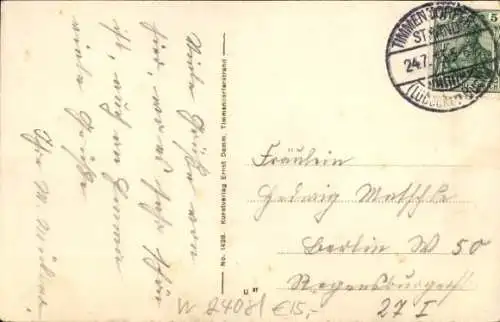 Viele Grüße von
hier, wo es sehr schön
ist, auch im Zimmer
viele Grüße
Ihr W.
No. 1498. Kunstverlag Ernst Damm, Timmendorferstrand
TIMMENDORFER
STRAND
24.7.
(LÜBECK)
5
Fräulein
Hedwig Matschke
Berlin W 50
Regensburgerst
27 I
W 2408/ €15,-